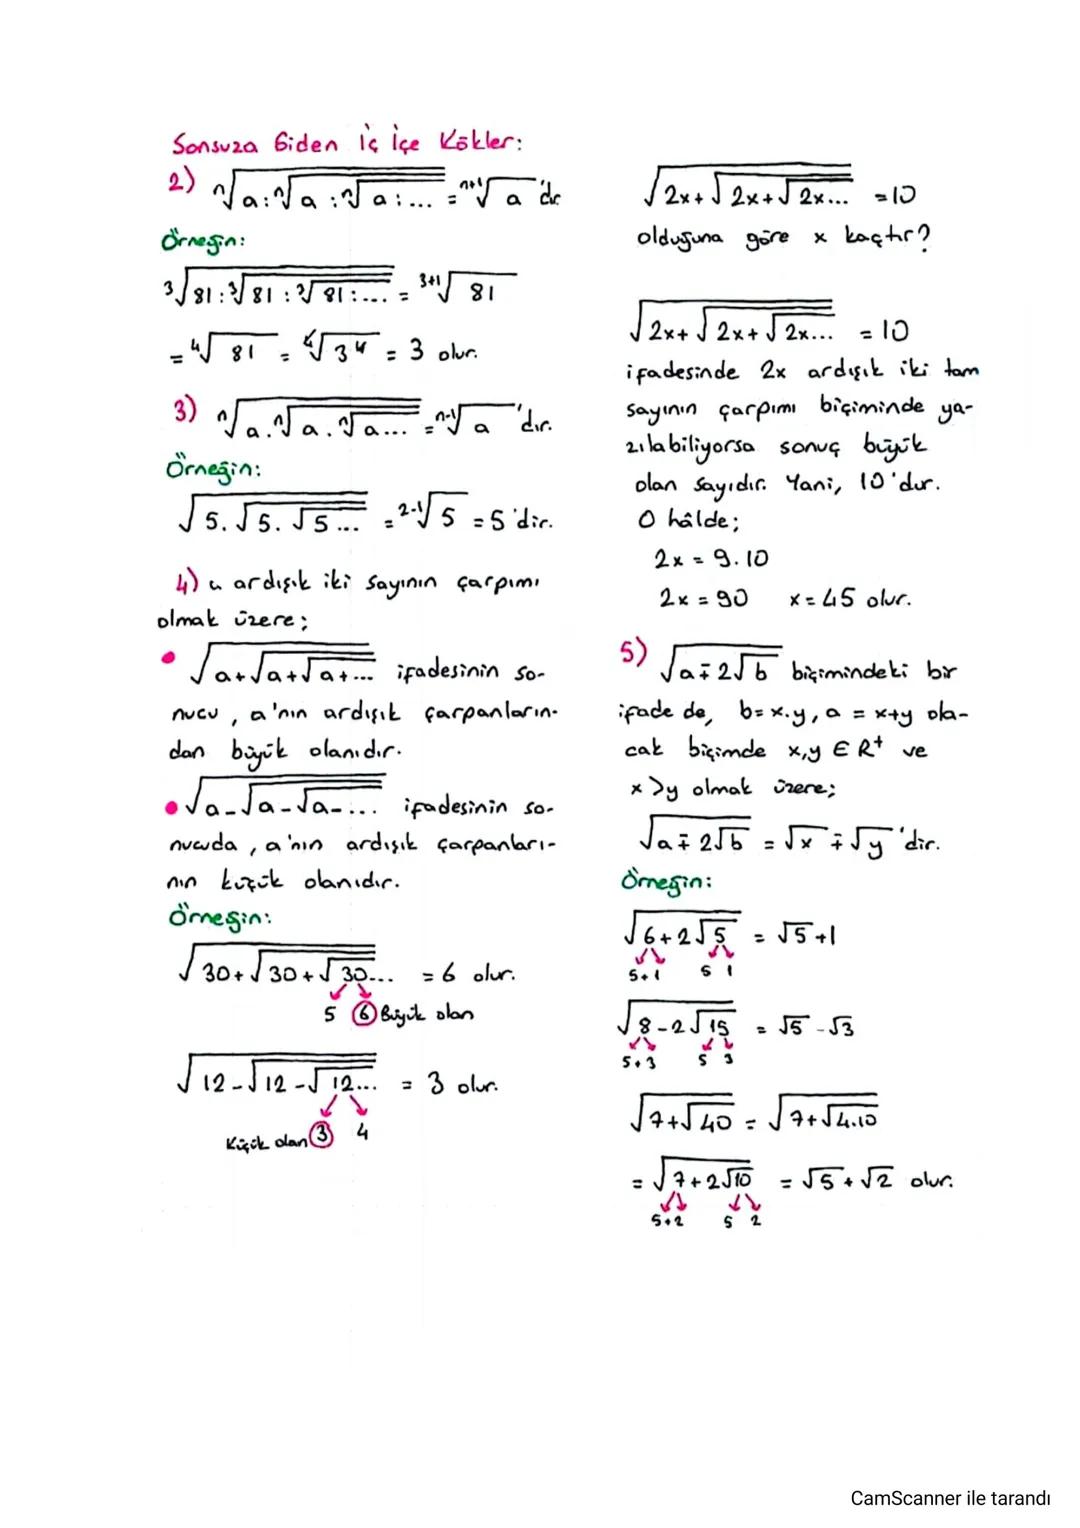 Sonsuza Giden İç İçe Kökler:
2) ⁿ√(a:ⁿ√(a:ⁿ√(a:...))) = ⁿ⁺¹√a 'dır
Örneğin:
³√(81:³√(81:³√(81:...))) = ³⁺¹√81
= ⁴√81 = ⁴√3⁴ = 3 olur.
3) ⁿ√(a.ⁿ√(a.ⁿ√(a...))) = ⁿ⁻¹√a 'dır.
Örneğin:
√(5.√(5.√(5...))) = ²⁻¹√5 = 5'dir.
4) a ardışık iki sayının çarpımı
olmak üzere;
• √(a+√(a+√(a+...))) ifadesinin so-
nucu, a'nın ardışık çarpanların-
dan büyük olanıdır.
• √(a-√(a-√(a-...))) ifadesinin so-
nucuda, a'nın ardışık çarpanları-
nın küçük olanıdır.
Örneğin:
√(30+√(30+√(30...))) = 6 olur.
5 6 Büyük olan
√(12-√(12-√(12...))) = 3 olur.
Küçük olan 3 4
√(2x+√(2x+√(2x...))) = 10
olduğuna göre x kaçtır?
√(2x+√(2x+√(2x...))) = 10
ifadesinde 2x ardışık iki tam
sayının çarpımı biçiminde ya-
zılabiliyorsa sonuç büyük
olan sayıdır. Yani, 10'dur.
O hâlde;
2x = 9.10
2x = 90 x = 45 olur.
5) √(a∓2√b) biçimindeki bir
ifade de, b=x.y, a = x+y ola-
cak biçimde x,y ∈ R⁺ ve
x>y olmak üzere;
√(a∓2√b) = √x ∓ √y 'dir.
Örneğin:
√(6+2√5) = √5+1
5+1 5 1
√(8-2√15) = √5-√3
5+3 5 3
√(7+√40) = √(7+√4.10)
= √(7+2√10) = √5+√2 olur.
5+2 5 2
CamScanner ile tarandı